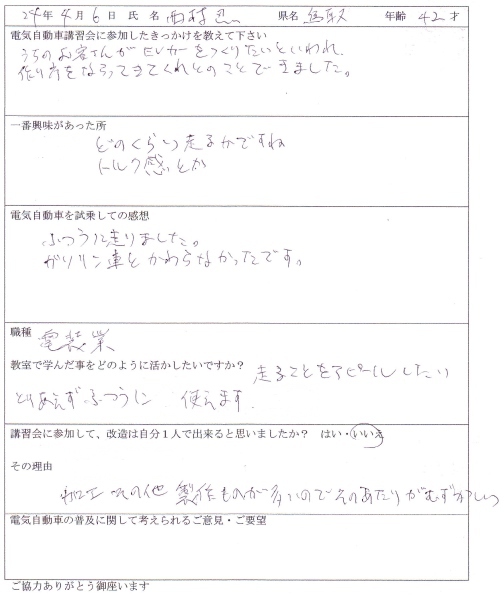 24年 4月 6日 氏 名 西村 忍 県名 鳥取 年齢 42才
電気自動車講習会に参加したきっかけを教えて下さい
うちのお客さんがEVカーをつくりたいといわれ、
作り方をならってきてくれとのことで来ました。
一番興味があった所
どのくらい走るかですね
トルク感とか
電気自動車を試乗しての感想
ふつうに走りました。
ガソリン車とかわらなかったです。
職種 電装業
教室で学んだ事をどのように活かしたいですか? 走ることをアピールしたい
とりあえずふつうに 使えます.
講習会に参加して、改造は自分1人で出来ると思いましたか? はい・いいえ
その理由
加工 その他 製作ものが多いのでそのあたりがむずかしい
電気自動車の普及に関して考えられるご意見・ご要望
ご協力ありがとう御座います